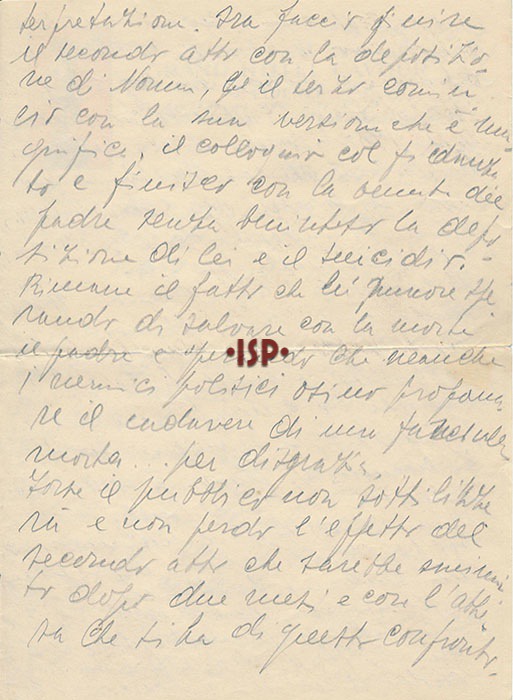 terpretazione. Ora faccio finire
il secondo atto con la deposizio-
ne di Nonna, e il terzo comin-
cio con la sua versione che è ma-
gnifica, il colloquio col fidanza
to e finisco con la venuta del
padre senza la depo
sizione di lei e il suicidio.
Rimane il fatto che lei muore spe
rando di salvare con la morte
il padre e che neanche
i nemici politici osino profana
re il cadavere di una fanciulla
morta... per disgrazia.
Forse il pubblico non sottilizze
rà e non perdo l'effetto del
secondo atto che sarebbe sminui
to dopo due mesi e con l'atte
sa che si ha di questo confronto.
•ISP•